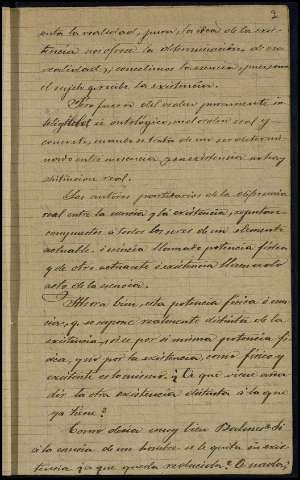 2
esta la realidad, pura, la idea de la exis-
tencia nos ofrece la determinación de esa
realidad y, concebimos la esencia, pues, como
el sujeto q. recibe la existencia.
Pero fuera del orden puramente in-
telectual ú ontológico, en el orden real y
concreto, cuando se trata de un ser determi-
nado entre su esencia y su existencia no hay
distincion real.
Los autores partidarios de la diferencia
real entre la esencia y la existencia, suponen
compuestos a todos los seres de un elemento
actuable ó esencia llamado potencia física
y de otro actuante ó existencia llamado
acto de la esencia.
Ahora bien, esta potencia física ó esen-
cia, q. se supone realmente distinta de la
existencia, ó es por si misma potencia fí-
sica, y no por la existencia, como físico y
existente es lo mismo. ¿A qué viene aña-
dir la otra existencia distinta á la que
ya tiene?
Como decia muy bien Balmes: Si
á la esencia de un hombre se le quita su exis-
tencia ¿a que queda reducida? A nada;